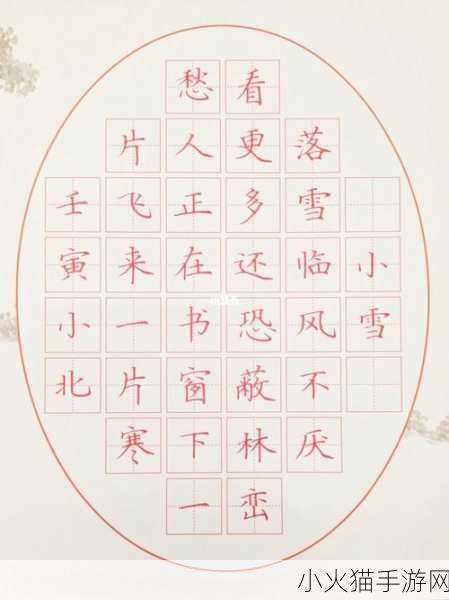 小雪
落雪临风不厌
看更多还恐蔽林峦
愁人正在书窗下一
片飞来一片寒
壬寅小北
小火猫手游网